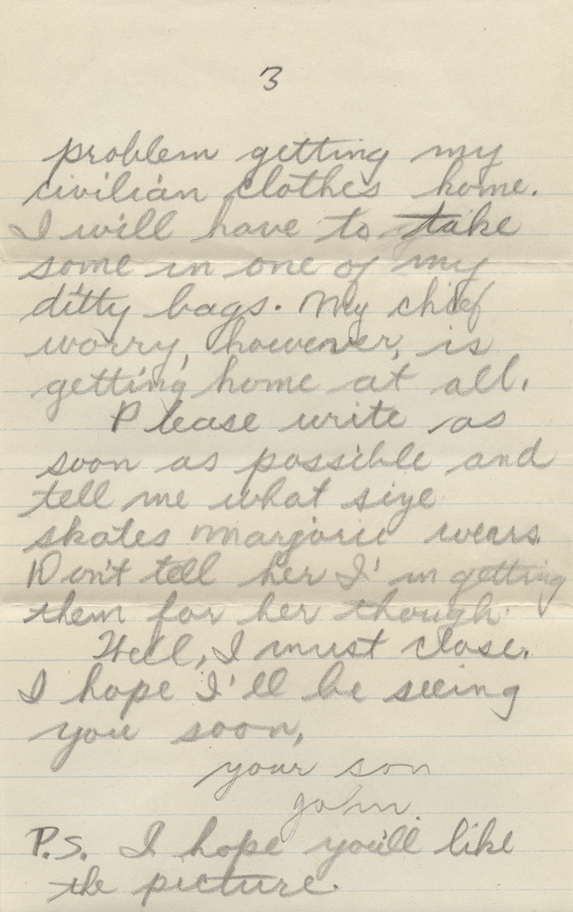 3
problem getting my
civilian clothes home.
I will have to take
some in one of my
ditty bags. My chief
worry, however, is
getting home at all.
Please write as
soon as possible and
tell me what size
skates Marjorie wears.
Don't tell her I'm getting
them for her though.
Well, I must close.
I hope I'll be seeing
you soon,
your son
John
P.S. I hope you'll like
the picture.